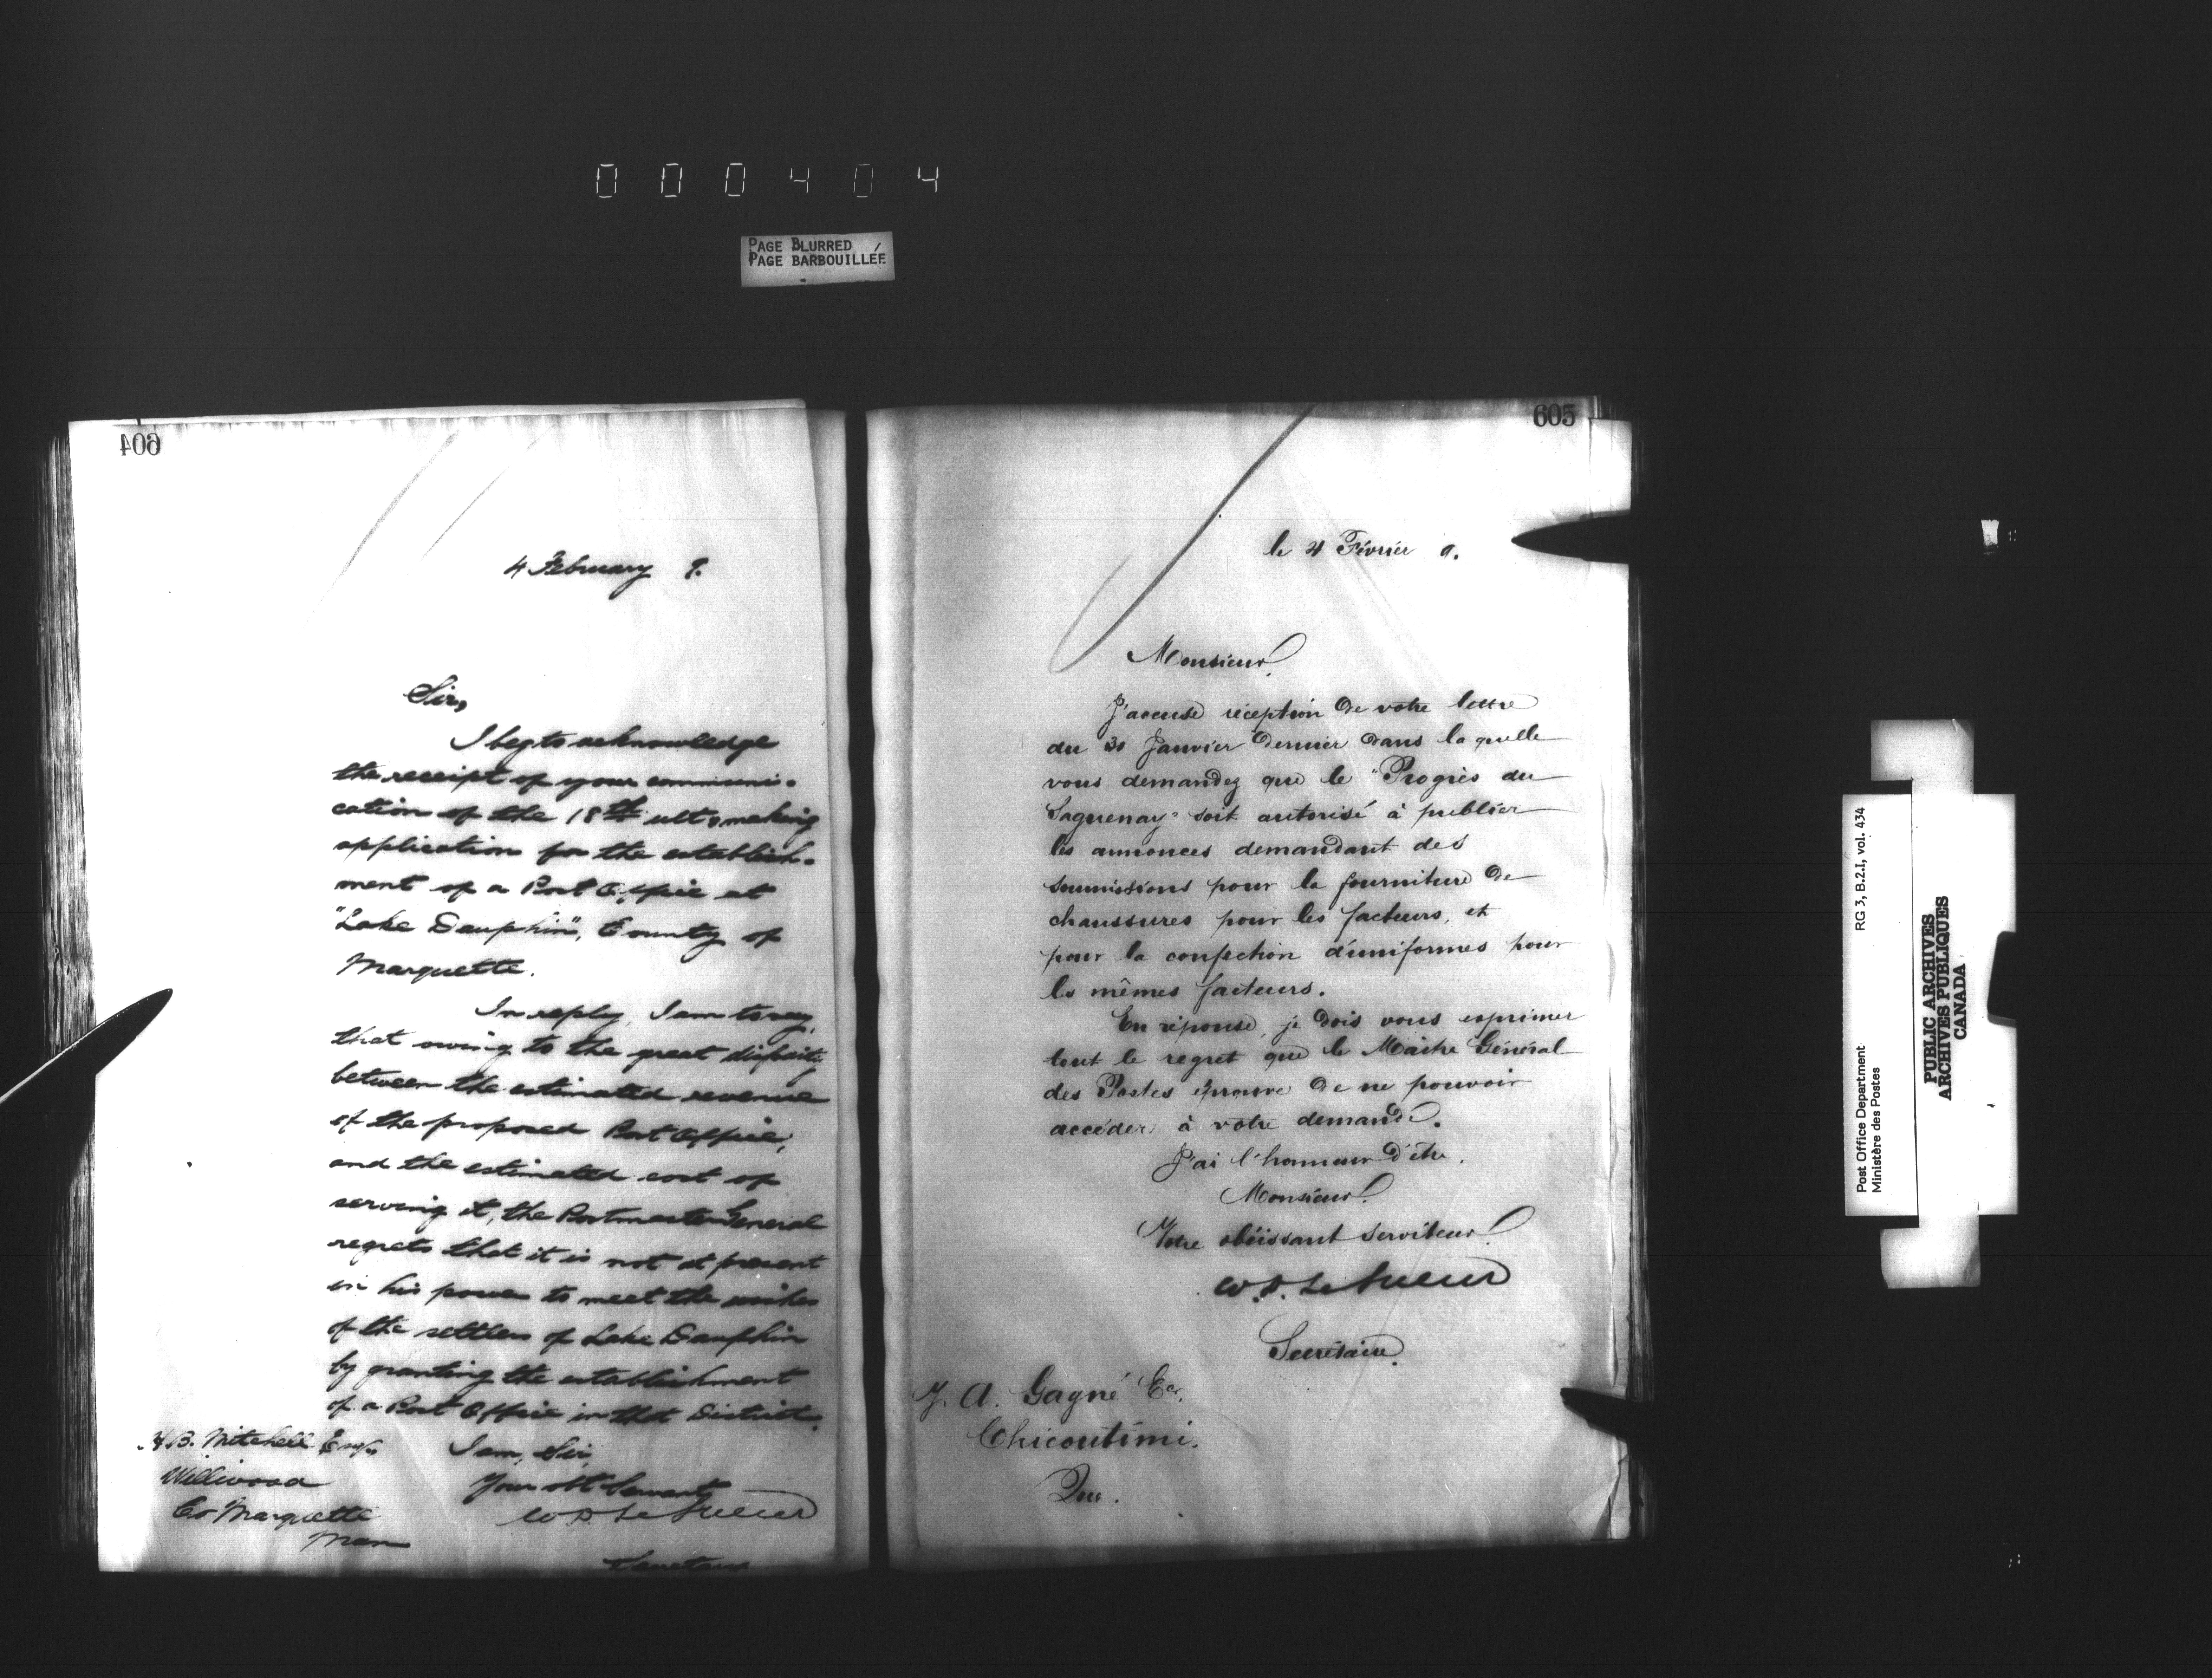 000404
PAGE BLURRED
PAGE BARBOUILLÉE
604
4 February 9.
Sir,
I beg to acknowledge
the receipt of your communi-
cation of the 18th ulto making
application for the establish-
ment of a Post Office at
"Lake Dauphin", County of
Marquette.
In reply, I am to say,
that owing to the great disparity
between the estimated revenue
of the proposed Post Office,
and the estimated cost of
serving it, the Postmaster General
regrets that it is not at present
in his power to meet the wishes
of the settlers of Lake Dauphin
by granting the establishment
of a Post Office in that District.
I am, Sir,
Your obt Servant
W D LeSueur
Secretary
B. Mitchell Esq.
Co Marquette
Man
605
le 4 Février 9.
Monsieur,
J'accuse réception de votre lettre
du 30 Janvier dernier dans laquelle
vous demandez que le "Progrès du
Saguenay" soit autorisé à publier
les annonces demandant des
soumissions pour la fourniture de
chaussures pour les facteurs, et
pour la confection d'uniformes pour
les mêmes facteurs.
En réponse, je dois vous exprimer
tout le regret que le Maître Général
des Postes éprouve de ne pouvoir
accéder à votre demande.
J'ai l'honneur d'être,
Monsieur,
Votre obéissant serviteur,
W. D. LeSueur
Secrétaire.
J. A. Gagné Ecr.
Chicoutimi.
Que.
Post Office Department
Ministère des Postes
RG 3, B.2.1, vol. 434
PUBLIC ARCHIVES
ARCHIVES PUBLIQUES
CANADA